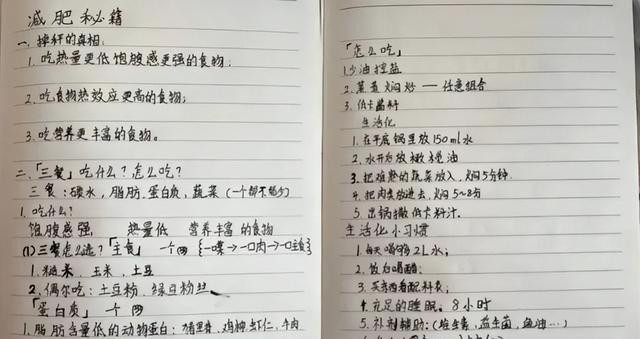 减肥秘籍
一、掉秤的真相:
1.吃热量更低饱腹感更强的食物;
2.吃食物热效应更高的食物;
3.吃营养更丰富的食物。
二、「三餐」吃什么?怎么吃?
三餐:碳水,脂肪,蛋白质,蔬菜(一个都不能少)
1.吃什么?
饱腹感强 热量低 营养丰富的食物
(1)三餐怎么选?「主食」 一个拳 {一口菜→一口肉→一口主食}
1.糙米、玉米、土豆
2.偶尔吃:土豆粉、绿豆粉丝
「蛋白质」 一个
1.脂肪含量低的动物蛋白: 虾仁、牛肉
「怎么吃」
1.少油控盐
2.蒸煮焖炒——任意组合
3.低卡酱料
生活化
1.在平底锅里放150ml水
2.水开后放橄榄油
3.把难熟的蔬菜放入,焖5分钟
4.把肉类放进去,焖5~8分
5.出锅撒低卡料汁.
生活化小习惯
1.每天喝够2L水;
2.饭后喝醋;
3.买东西看配料表;
4.充足的睡眠。8小时
5.补剂辅助:(维生素,益生菌,鱼油…)